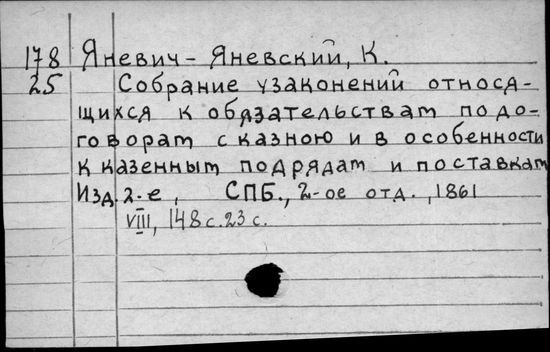 178 Яневич-Яневский, К.
25 Собрание узаконений относя-
щихся к обязательствам по до-
говорам с казною и в особенности
к казенным подрядам и поставкам
Изд. 2-е, СПБ., 2-ое отд., 1861
VIII, 148 с. 23 с.